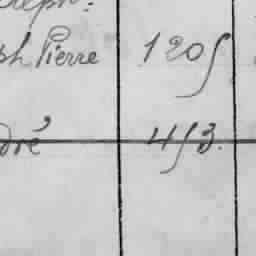 ph Pierre 1205
dré 453.